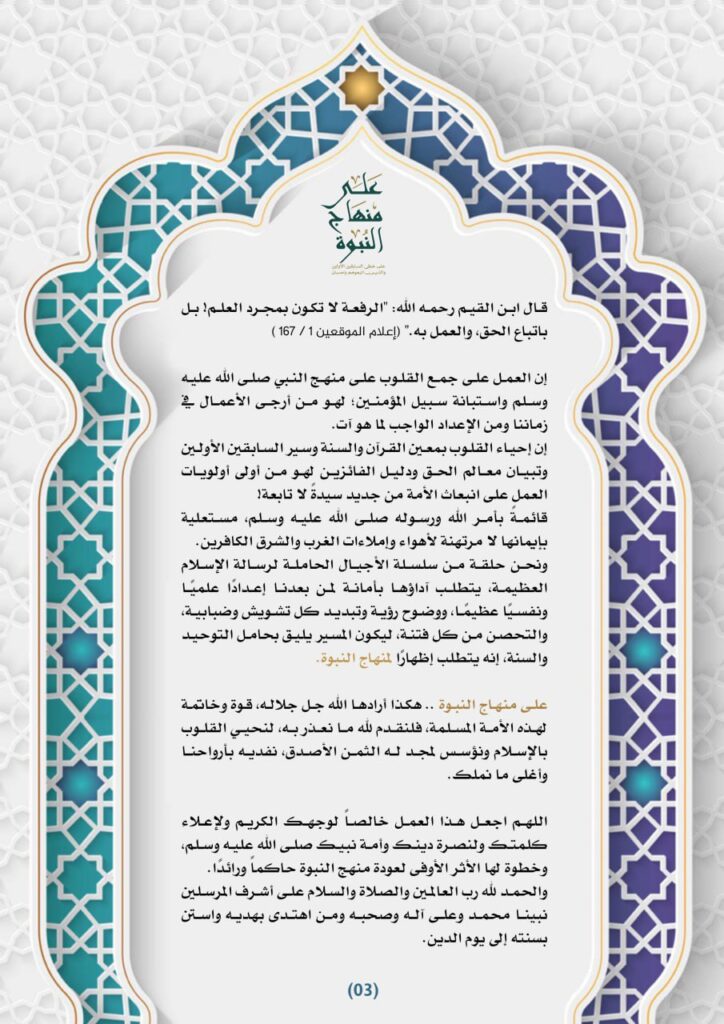 على
منهاج
النبوة
على خطى السابقين الأولين
قال ابن القيم رحمه الله: "الرفعة لا تكون بمجرد العلم! بل
باتباع الحق، والعمل به." (إعلام الموقعين 1 / 167 )
إن العمل على جمع القلوب على منهج النبي صلى الله عليه
وسلم واستبانة سبيل المؤمنين؛ لهو من أرجى الأعمال في
زماننا ومن الإعداد الواجب لما هو آت.
إن إحياء القلوب بمعين القرآن والسنة وسير السابقين الأولين
وتبيان معالم الحق ودليل الفائزين لهو من أولى أولويات
العمل على انبعاث الأمة من جديد سيدةً لا تابعة!
قائمةً بأمر الله ورسوله صلى الله عليه وسلم، مستعلية
بإيمانها لا مرتهنة لأهواء وإملاءات الغرب والشرق الكافرين.
ونحن حلقة من سلسلة الأجيال الحاملة لرسالة الإسلام
العظيمة، يتطلب آداؤها بأمانة لمن بعدنا إعدادًا علميًا
ونفسيًا عظيمًا، ووضوح رؤية وتبديد كل تشويش وضبابية،
والتحصن من كل فتنة، ليكون المسير يليق بحامل التوحيد
والسنة، إنه يتطلب إظهارًا لمنهاج النبوة.
على منهاج النبوة .. هكذا أرادها الله جل جلاله، قوة وخاتمة
لهذه الأمة المسلمة، فلنقدم لله ما نعذر به، لنحيي القلوب
بالإسلام ونؤسس لمجد له الثمن الأصدق، نفديه بأرواحنا
وأغلى ما نملك.
اللهم اجعل هذا العمل خالصاً لوجهك الكريم ولإعلاء
كلمتك ولنصرة دينك وأمة نبيك صلى الله عليه وسلم،
وخطوة لها الأثر الأوفى لعودة منهج النبوة حاكماً ورائدًا.
والحمد لله رب العالمين والصلاة والسلام على أشرف المرسلين
نبينا محمد وعلى آله وصحبه ومن اهتدى بهديه واستن
بسنته إلى يوم الدين.
(03)